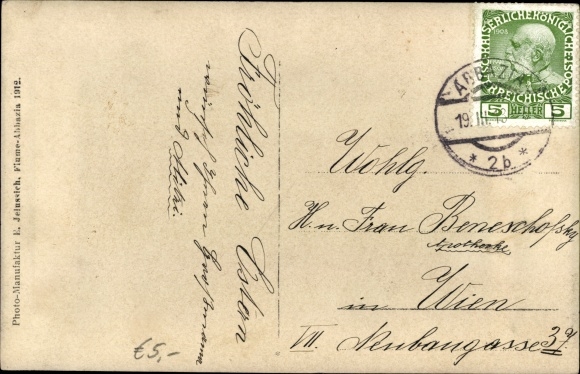 Photo-Manufaktur E. Jelussich, Fiume-Abbazia 1912.
Fröhliche Ostern
wünschen Ihnen
und Mitzi.
€5,-
KAISERLICHE KÖNIGLICHE
1908
ÖSTERREICHISCHE POST
5 HELLER 5
ABBAZIA
19. III.
* 2b *
Wohlg.
H. u. Frau Beneschofsky
Apotheke
in Wien
VII. Neubaugasse 39